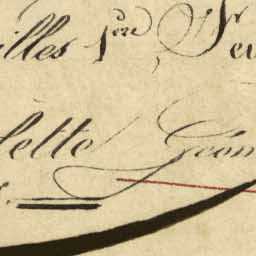 illes 1ère, Feu
lette Géom